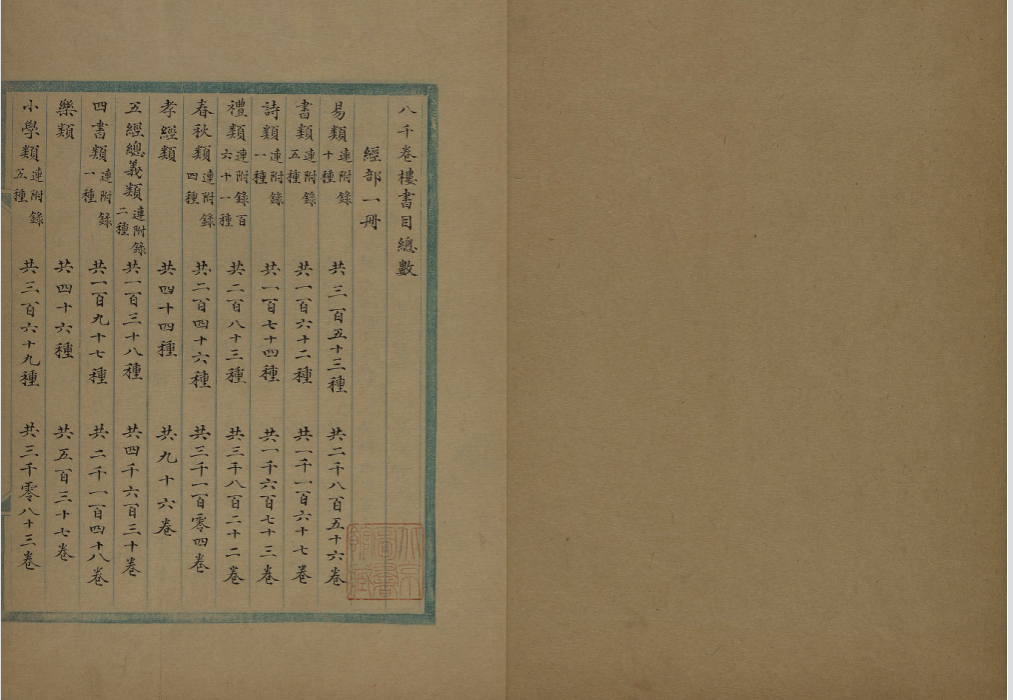 八千卷樓書目總數
經部一冊
易類連附錄十種 共三百五十三種 共二千八百五十六卷
書類連附錄五種 共一百六十二種 共一千一百六十七卷
詩類連附錄一種 共一百七十四種 共一千六百七十三卷
禮類連附錄百六十一種 共二百八十三種 共三千八百二十二卷
春秋類連附錄四種 共二百四十六種 共三千一百零四卷
孝經類 共四十四種 共九十六卷
五經總義類連附錄二種 共一百三十八種 共四千六百三十卷
四書類連附錄一種 共一百九十七種 共二千一百四十八卷
樂類 共四十六種 共五百三十七卷
小學類連附錄五種 共三百六十九種 共三千零八十三卷